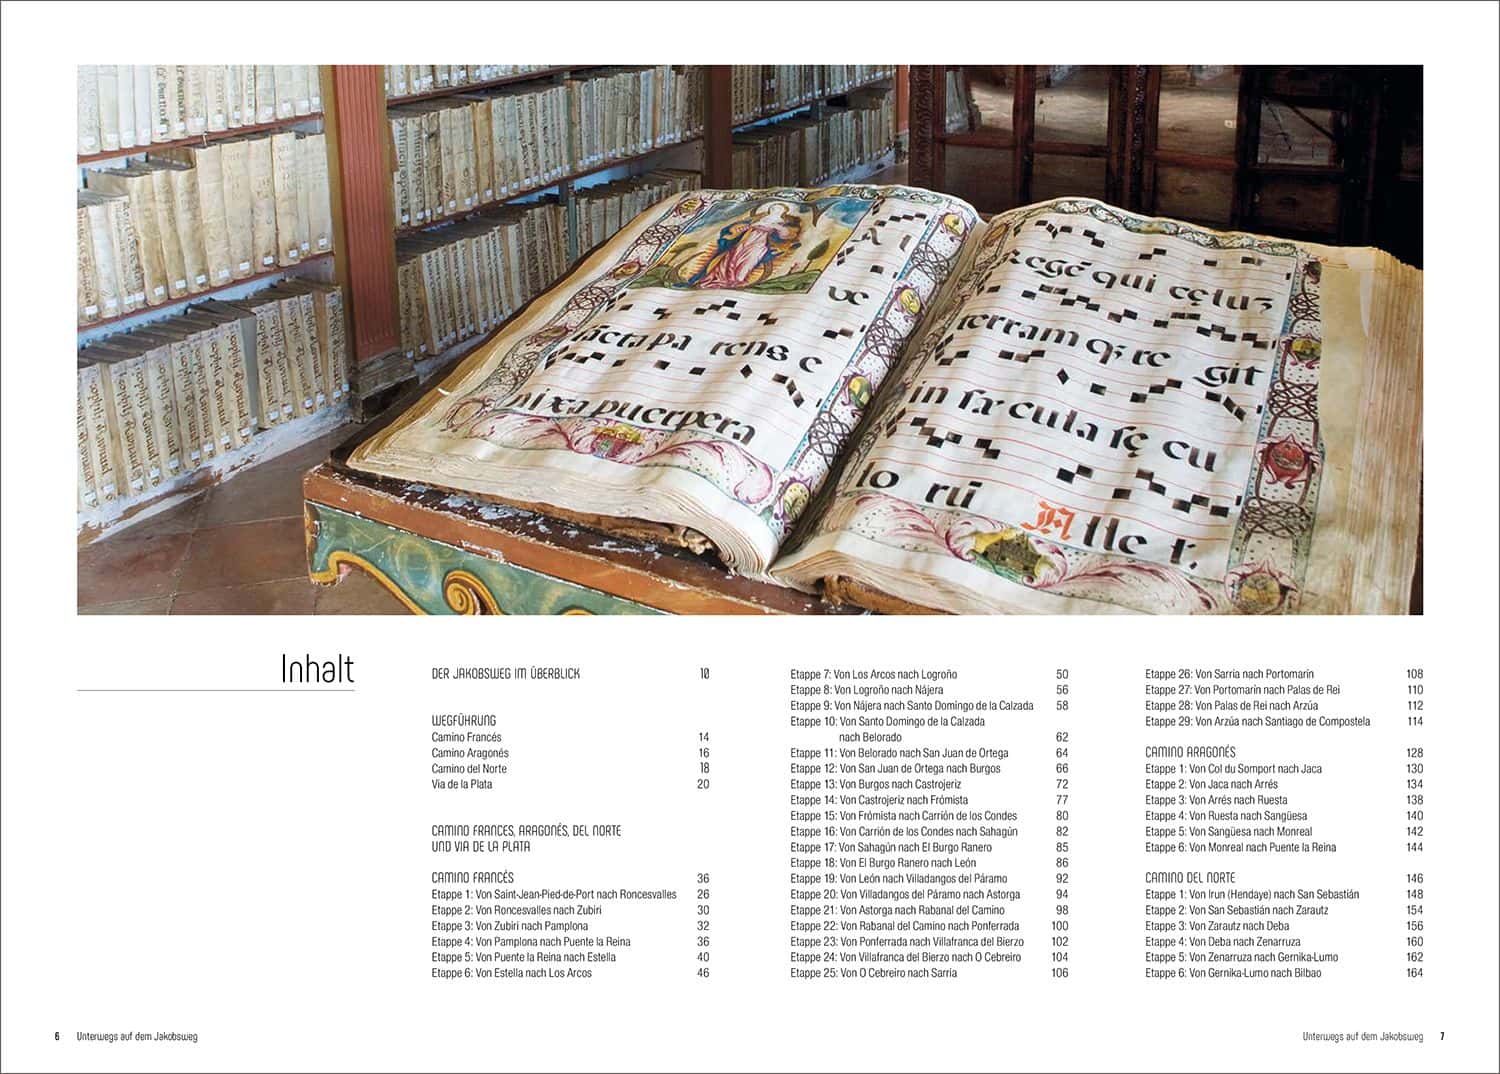 A I
ve
facta parens e
nixa puerpera
Rege qui cęluz
terram qȝ re git
in sæcula sę cu
lo rū Alle
Inhalt
DER JAKOBSWEG IM ÜBERBLICK 10
WEGFÜHRUNG
Camino Francés 14
Camino Aragonés 16
Camino del Norte 18
Via de la Plata 20
CAMINO FRANCES, ARAGONÉS, DEL NORTE
UND VIA DE LA PLATA
CAMINO FRANCÉS 36
Etappe 1: Von Saint-Jean-Pied-de-Port nach Roncesvalles 26
Etappe 2: Von Roncesvalles nach Zubiri 30
Etappe 3: Von Zubiri nach Pamplona 32
Etappe 4: Von Pamplona nach Puente la Reina 36
Etappe 5: Von Puente la Reina nach Estella 40
Etappe 6: Von Estella nach Los Arcos 46
Etappe 7: Von Los Arcos nach Logroño 50
Etappe 8: Von Logroño nach Nájera 56
Etappe 9: Von Nájera nach Santo Domingo de la Calzada 58
Etappe 10: Von Santo Domingo de la Calzada
nach Belorado 62
Etappe 11: Von Belorado nach San Juan de Ortega 64
Etappe 12: Von San Juan de Ortega nach Burgos 66
Etappe 13: Von Burgos nach Castrojeriz 72
Etappe 14: Von Castrojeriz nach Frómista 77
Etappe 15: Von Frómista nach Carrión de los Condes 80
Etappe 16: Von Carrión de los Condes nach Sahagún 82
Etappe 17: Von Sahagún nach El Burgo Ranero 85
Etappe 18: Von El Burgo Ranero nach León 86
Etappe 19: Von León nach Villadangos del Páramo 92
Etappe 20: Von Villadangos del Páramo nach Astorga 94
Etappe 21: Von Astorga nach Rabanal del Camino 98
Etappe 22: Von Rabanal del Camino nach Ponferrada 100
Etappe 23: Von Ponferrada nach Villafranca del Bierzo 102
Etappe 24: Von Villafranca del Bierzo nach O Cebreiro 104
Etappe 25: Von O Cebreiro nach Sarria 106
Etappe 26: Von Sarria nach Portomarín 108
Etappe 27: Von Portomarín nach Palas de Rei 110
Etappe 28: Von Palas de Rei nach Arzúa 112
Etappe 29: Von Arzúa nach Santiago de Compostela 114
CAMINO ARAGONÉS 128
Etappe 1: Von Col du Somport nach Jaca 130
Etappe 2: Von Jaca nach Arrés 134
Etappe 3: Von Arrés nach Ruesta 138
Etappe 4: Von Ruesta nach Sangüesa 140
Etappe 5: Von Sangüesa nach Monreal 142
Etappe 6: Von Monreal nach Puente la Reina 144
CAMINO DEL NORTE 146
Etappe 1: Von Irun (Hendaye) nach San Sebastián 148
Etappe 2: Von San Sebastián nach Zarautz 154
Etappe 3: Von Zarautz nach Deba 156
Etappe 4: Von Deba nach Zenarruza 160
Etappe 5: Von Zenarruza nach Gernika-Lumo 162
Etappe 6: Von Gernika-Lumo nach Bilbao 164
6 Unterwegs auf dem Jakobsweg
Unterwegs auf dem Jakobsweg 7